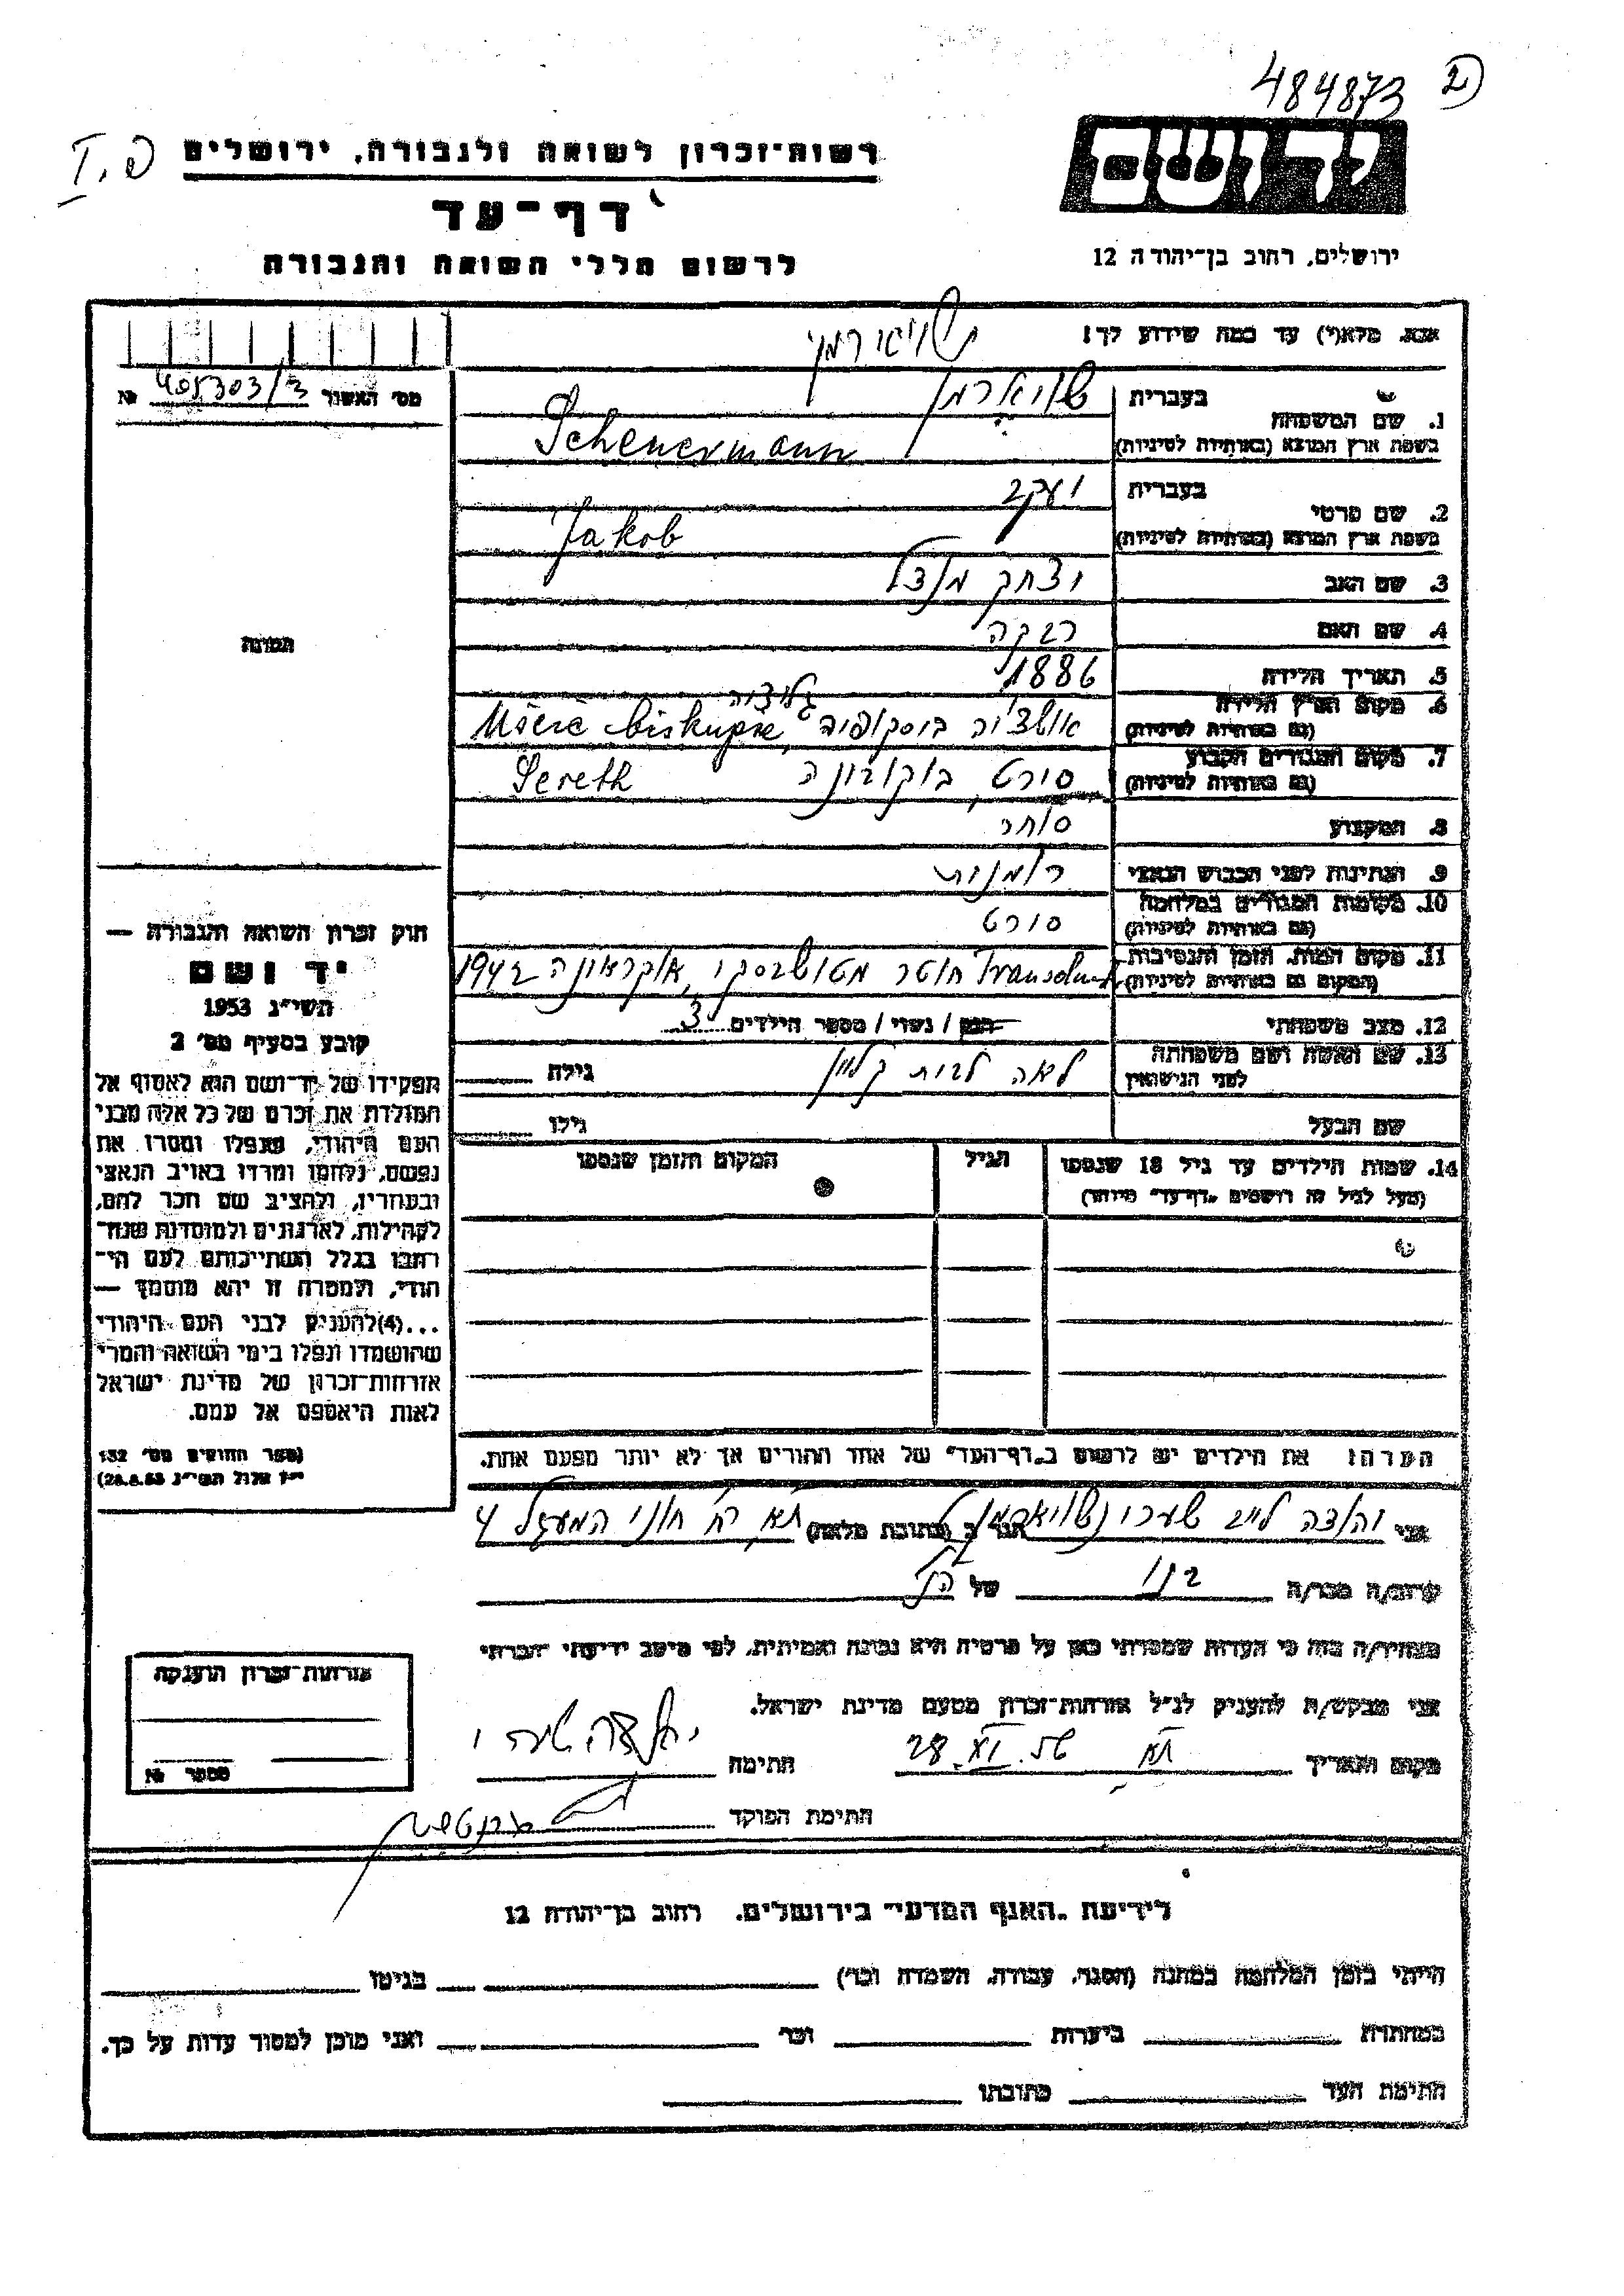 484873
ב
I. פ.
רשות־זכרון לשואה ולגבורה, ירושלים
יד ושם
דף־עד
ירושלים, רחוב בן־יהודה 12
לרשום חללי השואה והגבורה
אנא, מלא(י) עד כמה שידוע לך!
מס׳ האשור 405303/3 №
1. שם המשפחה
בעברית
שויארמן
בשפת ארץ המוצא (באותיות לטיניות)
Scheuermann
2. שם פרטי
בעברית יעקב
בשפת ארץ המוצא (באותיות לטיניות) Jakob
3. שם האב יצחק מנדל
4. שם האם רבקה
5. תאריך הלידה 1886
6. מקום וארץ הלידה
(גם באותיות לטיניות)
גליציה
biskupie
7. מקום המגורים הקבוע סירט, בוקובינה Sereth
(גם באותיות לטיניות)
8. המקצוע סוחר
9. הנתינות לפני הכבוש הנאצי רומנית
10. מקומות המגורים במלחמה סירט
(גם באותיות לטיניות)
11. מקום המות, הזמן והנסיבות
(המקום גם באותיות לטיניות)
אוקראינה 1942
12. מצב משפחתי רווק / נשוי / מספר הילדים 3
13. שם האשה ושם משפחתה לאה לבית קליין גילה
לפני הנישואין
שם הבעל גילו
14. שמות הילדים עד גיל 18 שנספו הגיל המקום והזמן שנספו
(מעל לגיל זה רושמים „דף־עד״ מיוחד)
הערה: את הילדים יש לרשום ב„דף־העד״ של אחד ההורים אך לא יותר מפעם אחת.
אני שערי שויארמן הגר ב (כתובת מלאה) תא רח׳ חוני המעגל 4
קרוב/ה מכר/ה בנו של הנ״ל
מצהיר/ה בזה כי העדות שמסרתי כאן על פרטיה היא נכונה ואמיתית, לפי מיטב ידיעתי והכרתי
אני מבקש/ת להעניק לנ״ל אזרחות־זכרון מטעם מדינת ישראל.
מקום ותאריך תא 28.XI.56 חתימה
חתימת הפוקד
תמונה
חוק זכרון השואה והגבורה —
יד ושם
תשי״ג 1953
קובע בסעיף מס׳ 2
תפקידו של יד־ושם הוא לאסוף אל
המולדת את זכרם של כל אלה מבני
העם היהודי, שנפלו ומסרו את
נפשם, נלחמו ומרדו באויב הנאצי
ובעוזריו, ולהציב שם וזכר להם,
לקהילות, לארגונים ולמוסדות שנח־
רבו בגלל השתייכותם לעם הי־
הודי, ולמטרה זו יהא מוסמך —
...(4)להעניק לבני העם היהודי
שהושמדו ונפלו בימי השואה והמרי
אזרחות־זכרון של מדינת ישראל
לאות היאספם אל עמם.
(ספר החוקים מס׳ 132
י״ז אלול תשי״ג 28.8.53)
אזרחות־זכרון הוענקה
מספר №
לידיעת „האגף המדעי״ בירושלים. רחוב בן־יהודה 12
הייתי בזמן המלחמה במחנה (הסגר, עבודה, השמדה וכו׳) בגיטו
במחתרת ביערות וכו׳ ואני מוכן למסור עדות על כך.
חתימת העד כתובתו